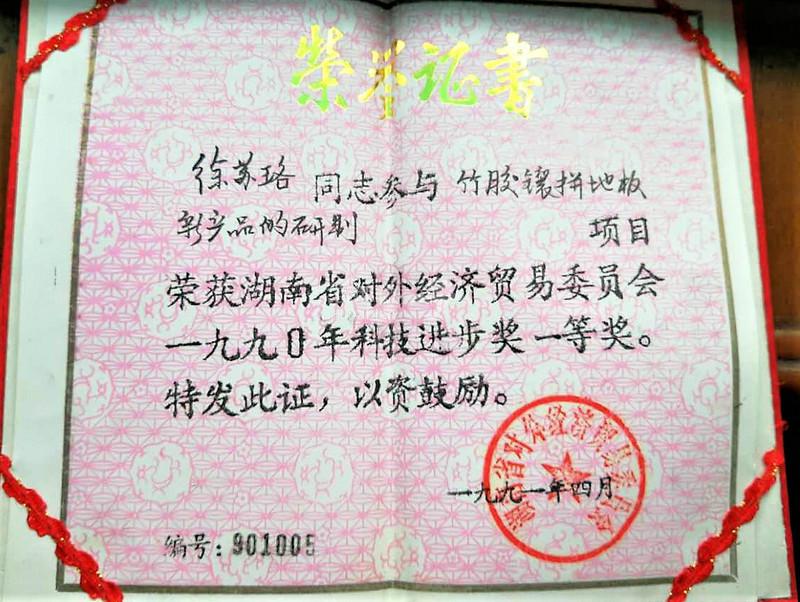 荣誉证书
徐苏珞 同志参与 竹胶镶拼地板
新产品的研制 项目
荣获湖南省对外经济贸易委员会
一九九0年科技进步奖一等奖。
特发此证，以资鼓励。
湖南省对外经济贸易委员会
一九九一年四月
编号：901005